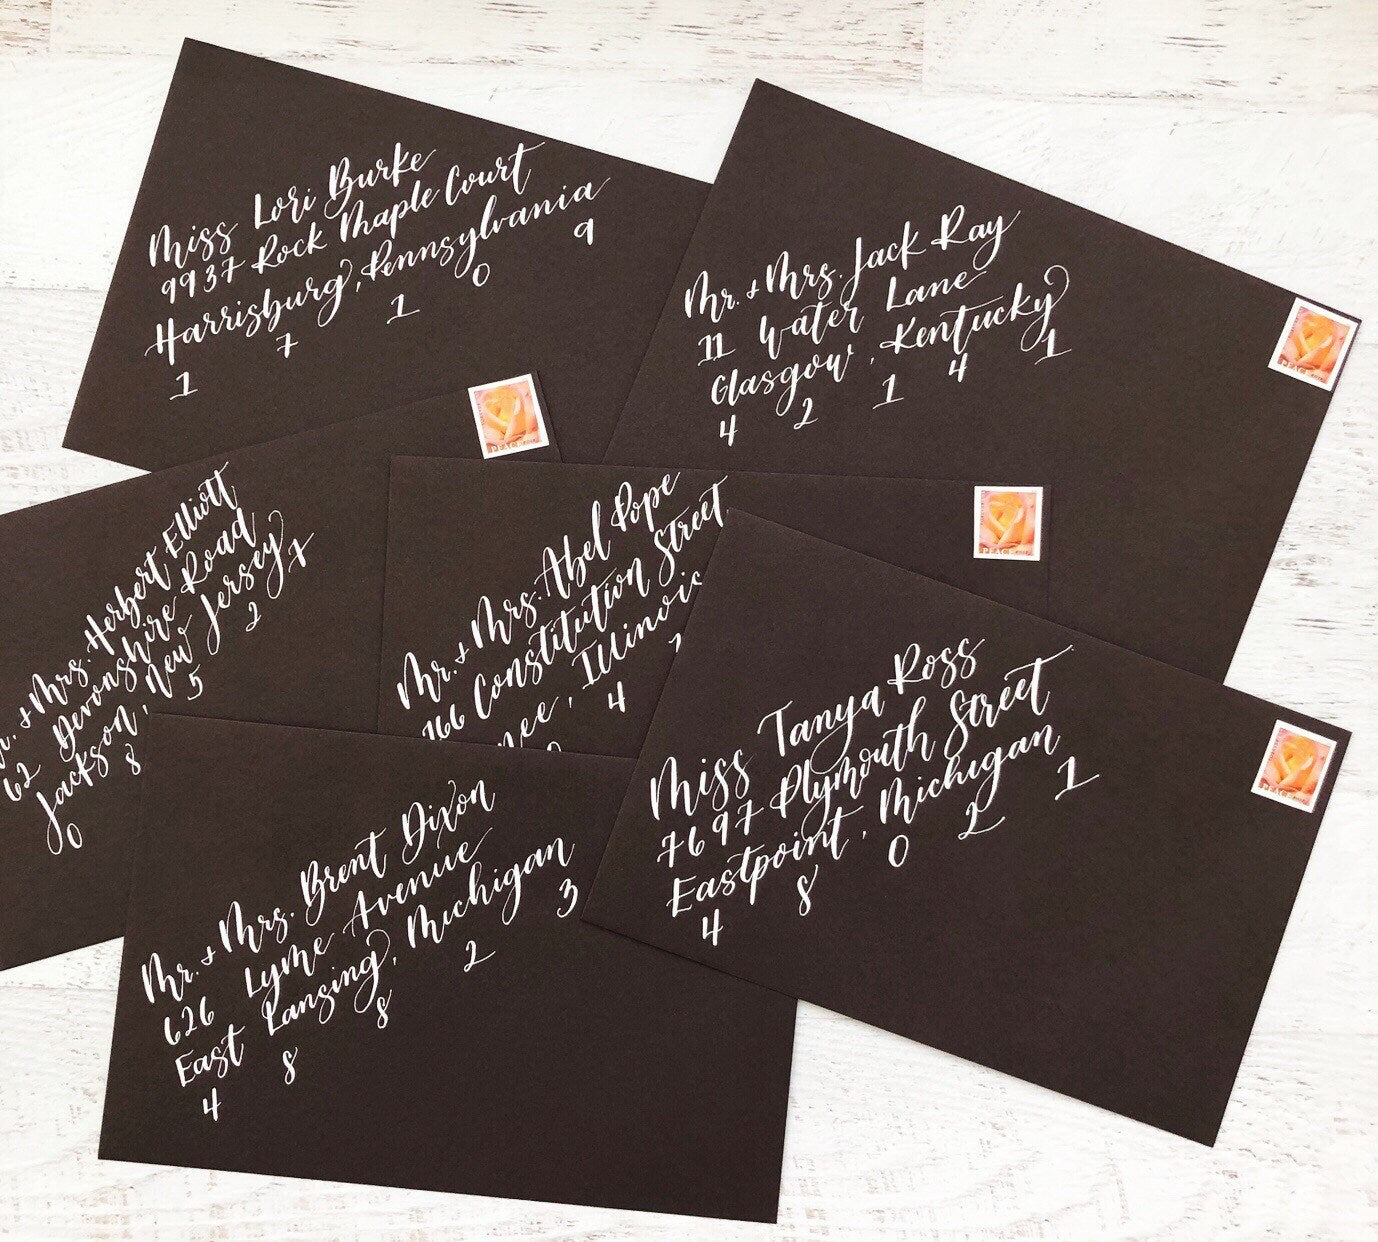 Miss Lori Burke
9937 Rock Maple Court
Harrisburg, Pennsylvania
1 7 1 0 9
Mr. + Mrs. Jack Ray
11 Water Lane
Glasgow, Kentucky
4 2 1 4 1
PEACE
Mr. + Mrs. Herbert Elliott
62 Devonshire Road
Jackson, New Jersey
0 8 5 2 7
PEACE
Mr. + Mrs. Abel Pope
Constitution Street
Illinois
4
PEACE
Miss Tanya Ross
7697 Plymouth Street
Eastpoint, Michigan
4 8 0 2 1
PEACE
Mr. + Mrs. Brent Dixon
626 Lyme Avenue
East Lansing, Michigan
4 8 8 2 3